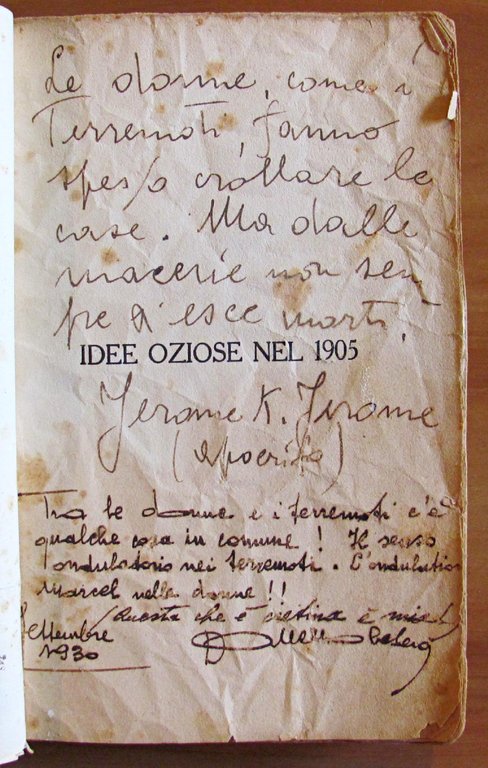 Le donne, come i
Terremoti, fanno
spesso crollare le
case. Ma dalle
macerie non sem-
pre s'esce morti.
IDEE OZIOSE NEL 1905
Jerome K. Jerome
(apocrifo)
Tra le donne e i terremoti c'è
qualche cosa in comune! Il senso
ondulatorio nei terremoti. L'ondulation
Marcel nelle donne!!
(Questa che è cretina è mia)
Settembre
1930